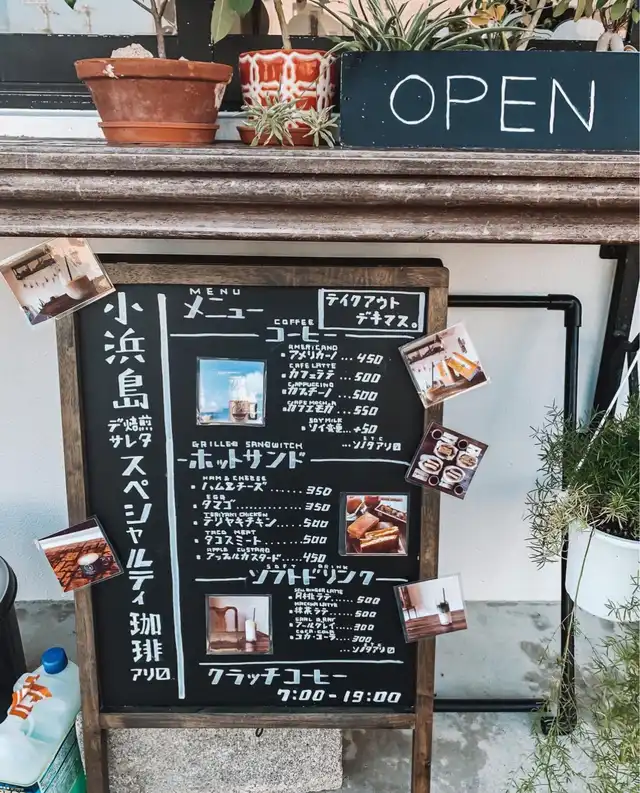 OPEN
小浜島
デ焙煎
サレタ
スペシャルティ
珈琲
アリ〼
MENU
メニュー
テイクアウト
デキマス。
COFFEE
コーヒー
AMERICANO
・アメリカーノ...450
CAFE LATTE
・カフェラテ...500
CAPPUCCINO
・カプチーノ...500
CAFE MOCHA
・カフェモカ...550
SOY MILK
・ソイ変更...+50
ETC
...ソノタアリ〼
GRILLED SANDWITCH
ホットサンド
HAM & CHEESE
・ハム&チーズ......350
EGG
・タマゴ......350
TERIYAKI CHICKEN
・テリヤキチキン...500
TACO MEAT
・タコスミート...500
APPLE CUSTARD
・アップルカスタード...450
SOFT DRINK
ソフトドリンク
GINGER LATTE
・月桃ラテ...500
MATCHA LATTE
・抹茶ラテ...500
EARL GRAY
・アールグレイ...300
COCA-COLA
・コカ・コーラ...300
...ソノタアリ〼
クラッチコーヒー
7:00-19:00